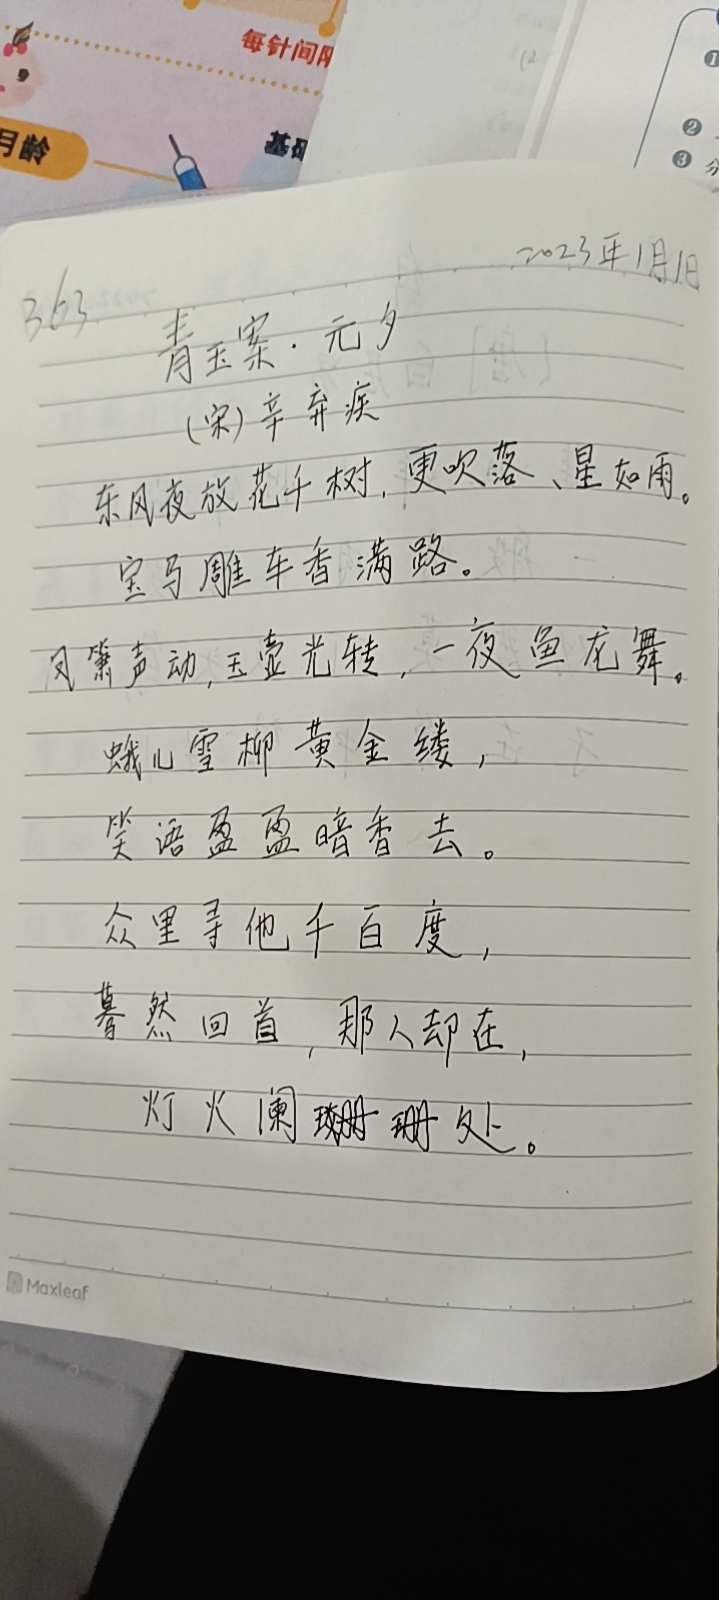 每针间隔
月龄
基础
①
②
③
2023年1月1日
363
青玉案·元夕
(宋)辛弃疾
东风夜放花千树,更吹落、星如雨。
宝马雕车香满路。
凤箫声动,玉壶光转,一夜鱼龙舞。
蛾儿雪柳黄金缕,
笑语盈盈暗香去。
众里寻他千百度,
蓦然回首,那人却在,
灯火阑珊处。
Maxleaf